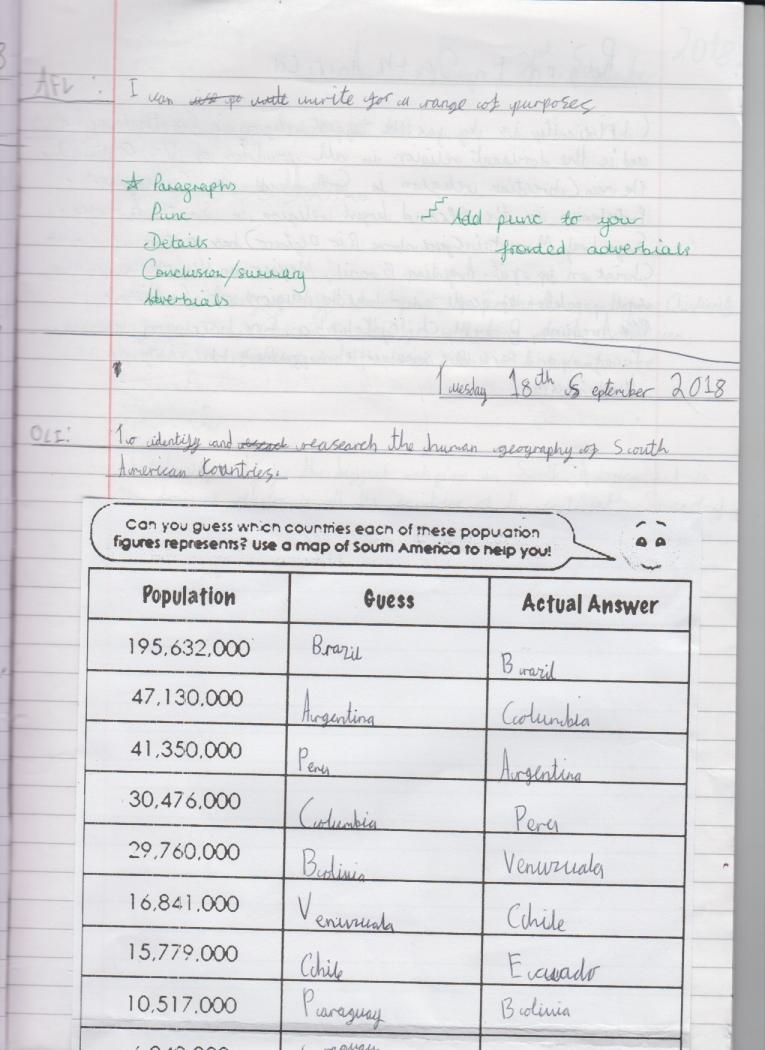 AFL : I can write for a range of purposes
☆ Paragraphs
Punc
Details
Conclusion/summary
Adverbials
Add punc to your
fronted adverbials
Tuesday 18th September 2018
OLI: To identify and reasearch the human geography of South
American Countries.
Can you guess which countries each of these population
figures represents? Use a map of South America to help you!
Population Guess Actual Answer
195,632,000 Brazil Brazil
47,130,000 Argentina Columbia
41,350,000 Peru Argentina
30,476,000 Columbia Peru
29,760,000 Bolivia Venuzuala
16,841,000 Venuzuala Chile
15,779,000 Chile Ecuador
10,517,000 Paraguay Bolivia